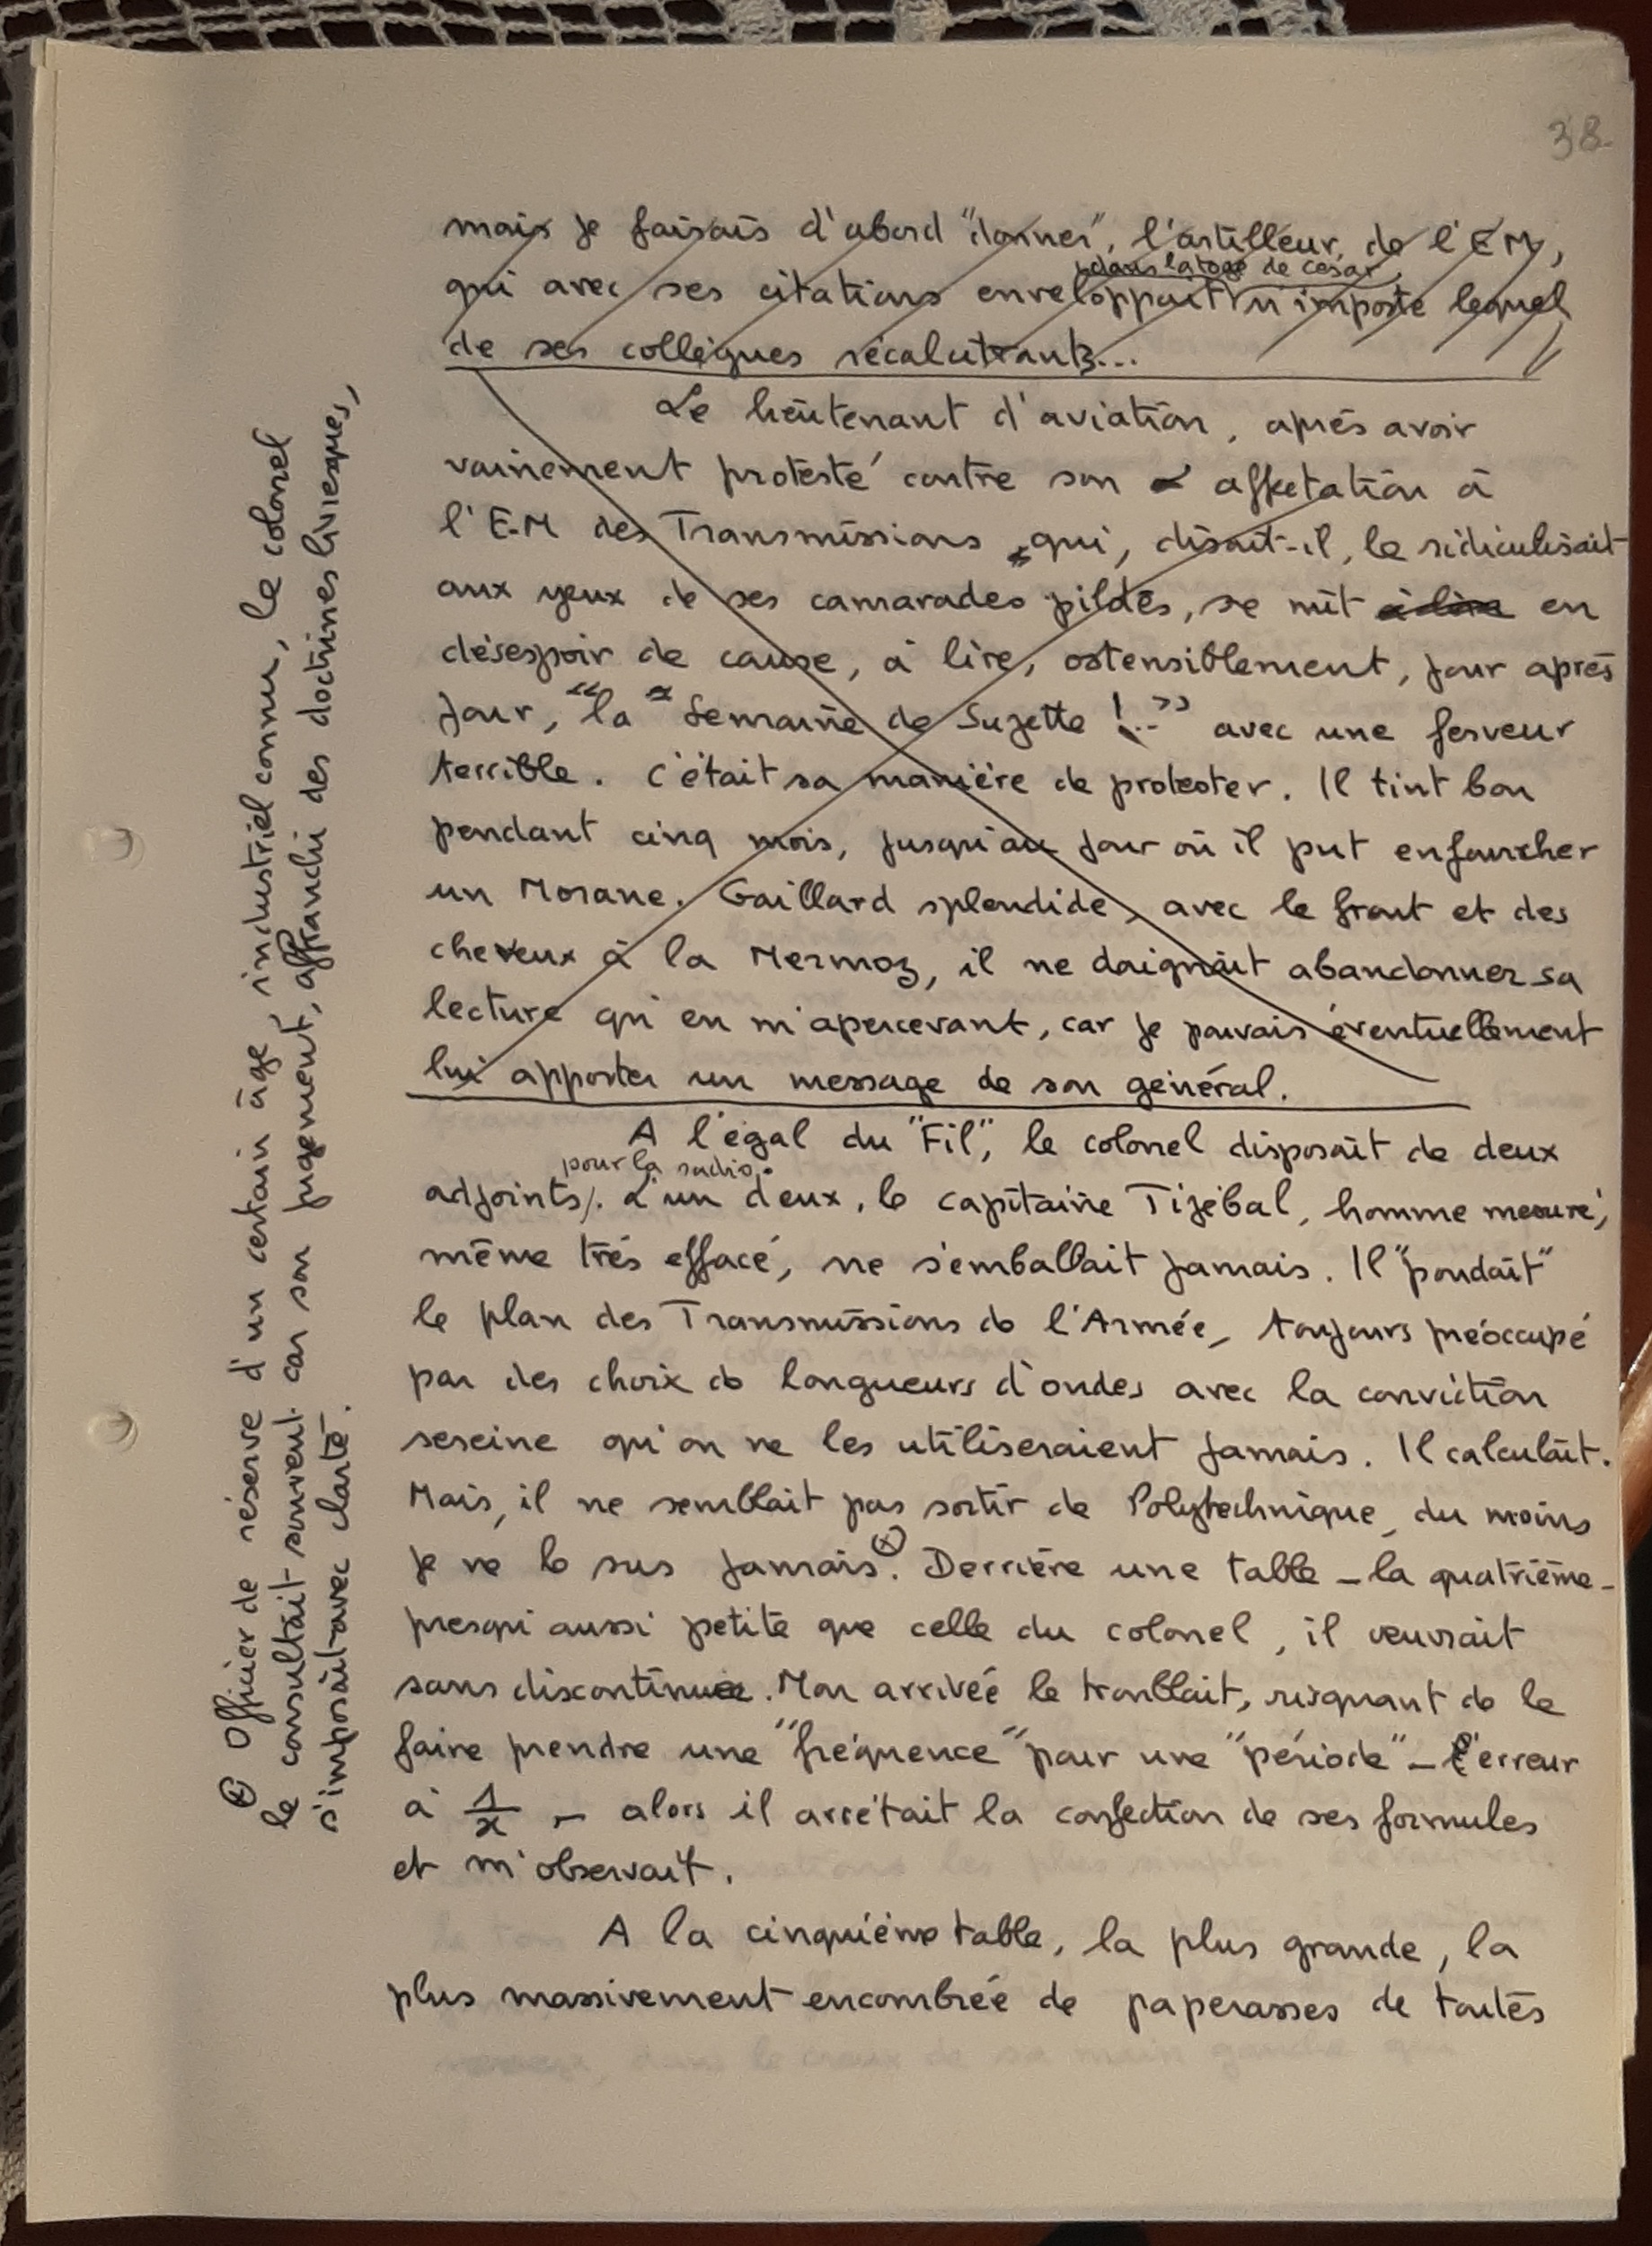 38.
mais je faisais d'abord "donner", l'artilleur, de l'EM,
dans la toge de César,
qui avec ses citations enveloppait n'importe lequel
de ses collègues récalcitrants...
Le lieutenant d'aviation, après avoir
vainement protesté contre son affectation à
l'E.M des Transmissions qui, disait-il, le ridiculisait
aux yeux de ses camarades pilotes, se mit à lire en
désespoir de cause, à lire, ostensiblement, jour après
jour, "la Semaine de Suzette !.." avec une ferveur
terrible. C'était sa manière de protester. Il tint bon
pendant cinq mois, jusqu'au jour où il put enfourcher
un Morane. Gaillard splendide, avec le front et des
cheveux à la Mermoz, il ne daignait abandonner sa
lecture qu'en m'apercevant, car je pouvais éventuellement
lui apporter un message de son général.
A l'égal du "Fil", le colonel disposait de deux
pour la radio.
adjoints. L'un d'eux, le capitaine Tijébal, homme mesuré,
même très effacé, ne s'emballait jamais. Il "pondait"
le plan des Transmissions de l'Armée, toujours préoccupé
par des choix de longueurs d'ondes avec la conviction
sereine qu'on ne les utiliseraient jamais. Il calculait.
Mais, il ne semblait pas sortir de Polytechnique, du moins
je ne le sus jamais. ⊗ Derrière une table – la quatrième –
presqu'aussi petite que celle du colonel, il œuvrait
sans discontinuer. Mon arrivée le troublait, risquant de le
faire prendre une "fréquence" pour une "période" – l'erreur
à 1/x – alors il arrêtait la confection de ses formules
et m'observait.
A la cinquième table, la plus grande, la
plus massivement encombrée de paperasses de toutes
⊗ Officier de réserve d'un certain âge, industriel connu, le colonel
le consultait souvent car son jugement, affranchi des doctrines livresques,
s'imposait avec clarté.